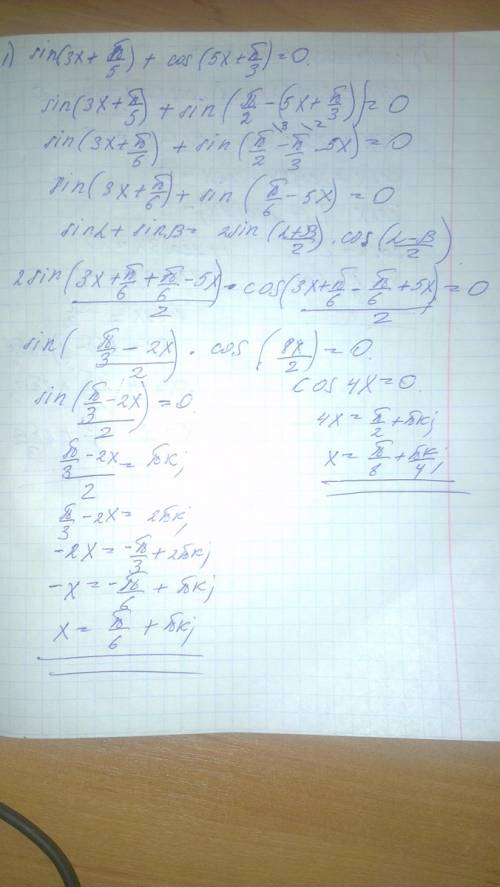 1) sin(3x + π/5) + cos(5x + π/3) = 0.
sin(3x + π/5) + sin(π/2 - (5x + π/3)) = 0
sin(3x + π/6) + sin(π/2 - π/3 - 5x) = 0
sin(3x + π/6) + sin(π/6 - 5x) = 0
sinα + sinβ = 2sin(α+β/2) · cos(α-β/2)
2sin(3x + π/6 + π/6 - 5x / 2) · cos(3x + π/6 - π/6 + 5x / 2) = 0
sin(π/3 - 2x / 2) · cos(8x/2) = 0.
sin(π/3 - 2x / 2) = 0.
π/3 - 2x / 2 = πк;
π/3 - 2x = 2πк;
-2x = -π/3 + 2πк;
-x = -π/6 + πк;
x = π/6 + πк;
cos4x = 0.
4x = π/2 + πк;
x = π/8 + πк/4!